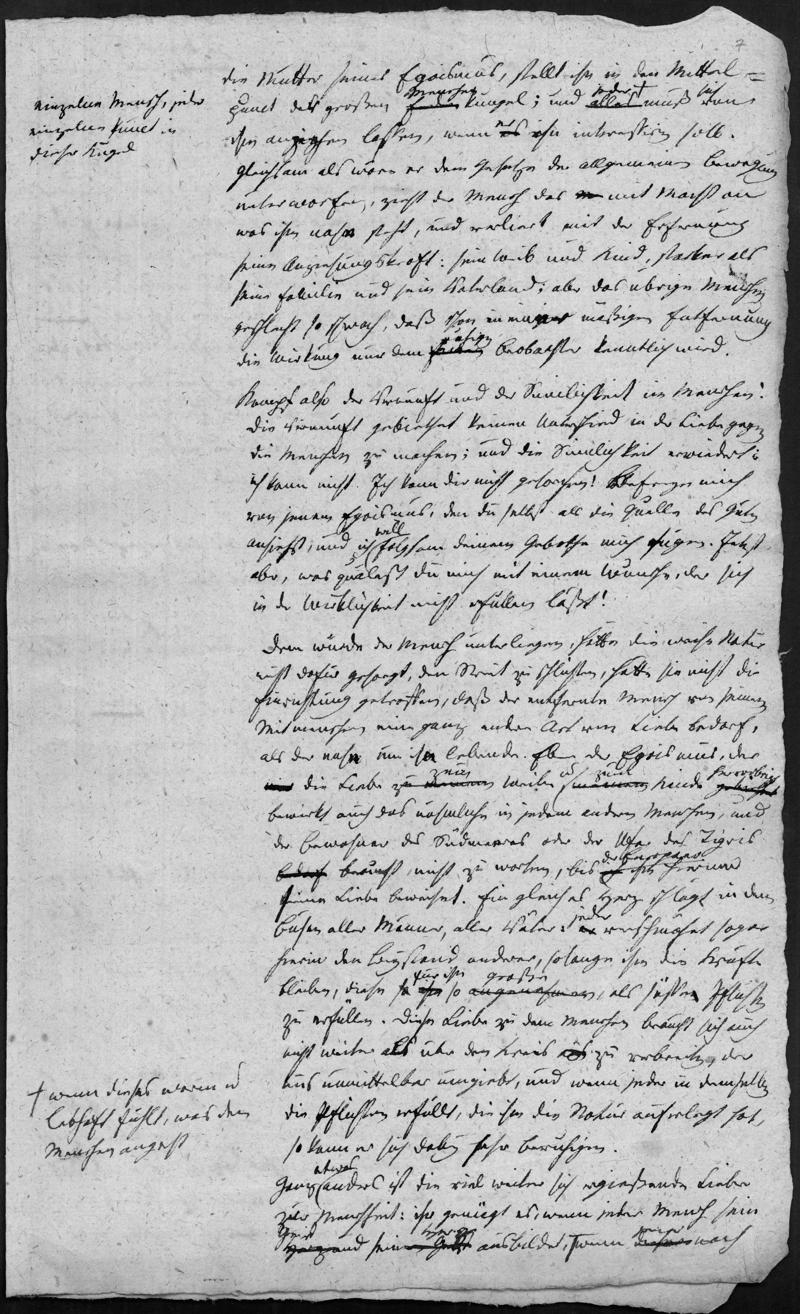 7
die Mutter seines Egoismus, stellt ihn in den Mittel=
punct der großen Menschen kugel; und alles jeder † muß sich von
ihm anziehen lassen, wenn es ihn interessiren soll.
einzelne Mensch, jeder
einzelne Punct in
dieser Kugel
Gleichsam als wäre er dem Gesetze der allgemeinen Bewegung
unterworfen, zieht der Mensch das mit Macht an
was ihm nahe steht, und verliert mit der Entfernung
seine Anziehungskraft: sein Weib und Kind, stärker als
seine Familie und sein Vaterland; aber das übrige Menschen
geschlecht so schwach, daß schon in einer mäßigen Entfernung
die Wirkung nur dem Beobachter kenntlich wird.
Kampf also der Vernunft und der Sinnlichkeit im Menschen!
Die Vernunft gebiethet keinen Unterschied in der Liebe gegen
die Menschen zu machen; und die Sinnlichkeit erwiedert:
ich kann nicht. Ich kann dir nicht gehorchen! Befreye mich
von jenem Egoismus, den du selbst als die Quelle des Guten
ansiehst, und ich will folgsam deinem Gebothe mich fügen. Jetzt
aber, was quälest du mich mit einem Wunsche, der sich
in der Wirklichkeit nicht erfüllen läßt!
Dem würde der Mensch unterliegen, hätte die weise Natur
nicht dafür gesorgt, den Streit zu schlichten, hätte sie nicht die
Einrichtung getroffen, daß der entfernte Mensch von seinem
Mitmenschen eine ganz andere Art von Liebe bedarf,
als der nahe um ihn lebende. Eben der Egoismus, der
die Liebe zum Weibe und zum Kinde hervorbringt
bewirkt auch das nähmliche in jedem andern Menschen, und
der Bewohner des Südmeeres oder der Ufer des Tigris
bedarf braucht nicht zu warten, bis der Europäer hierinne
seine Liebe beweiset. Ein gleiches Herz schlägt in dem
Busen aller Männer, aller Väter: jeder verschmähet sogar
hierin den Beystand anderer, solange ihm die Kräfte
bleiben, diese für ihn so großen angenehmen, als süßen Pflichten
zu erfüllen. Diese Liebe zu dem Menschen braucht sich auch
nicht weiter als über den Kreis zu verbreiten, der
uns unmittelbar umgiebt, und wenn jeder in demselben
die Pflichten erfüllt, die ihm die Natur auferlegt hat,
so kann er sich dabey sehr beruhigen.
† wenn dieses warm u
lebhaft fühlt, was den
Menschen angeht
Ganz etwas anders ist die viel weiter sich ergießende Liebe
zur Menschheit: ihr genügt es, wenn jeder Mensch sein
Herz und seinen Geist ausbildet, wenn dieser nach